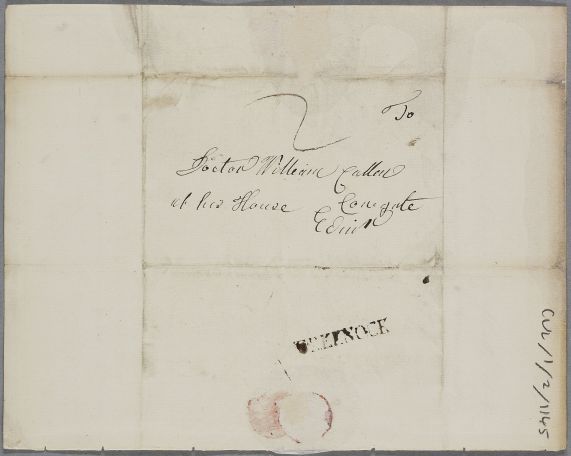 2
To
Doctor William Cullen
at his House Cowgate
Edinr
GREENOCK
CUL/1/2/1145